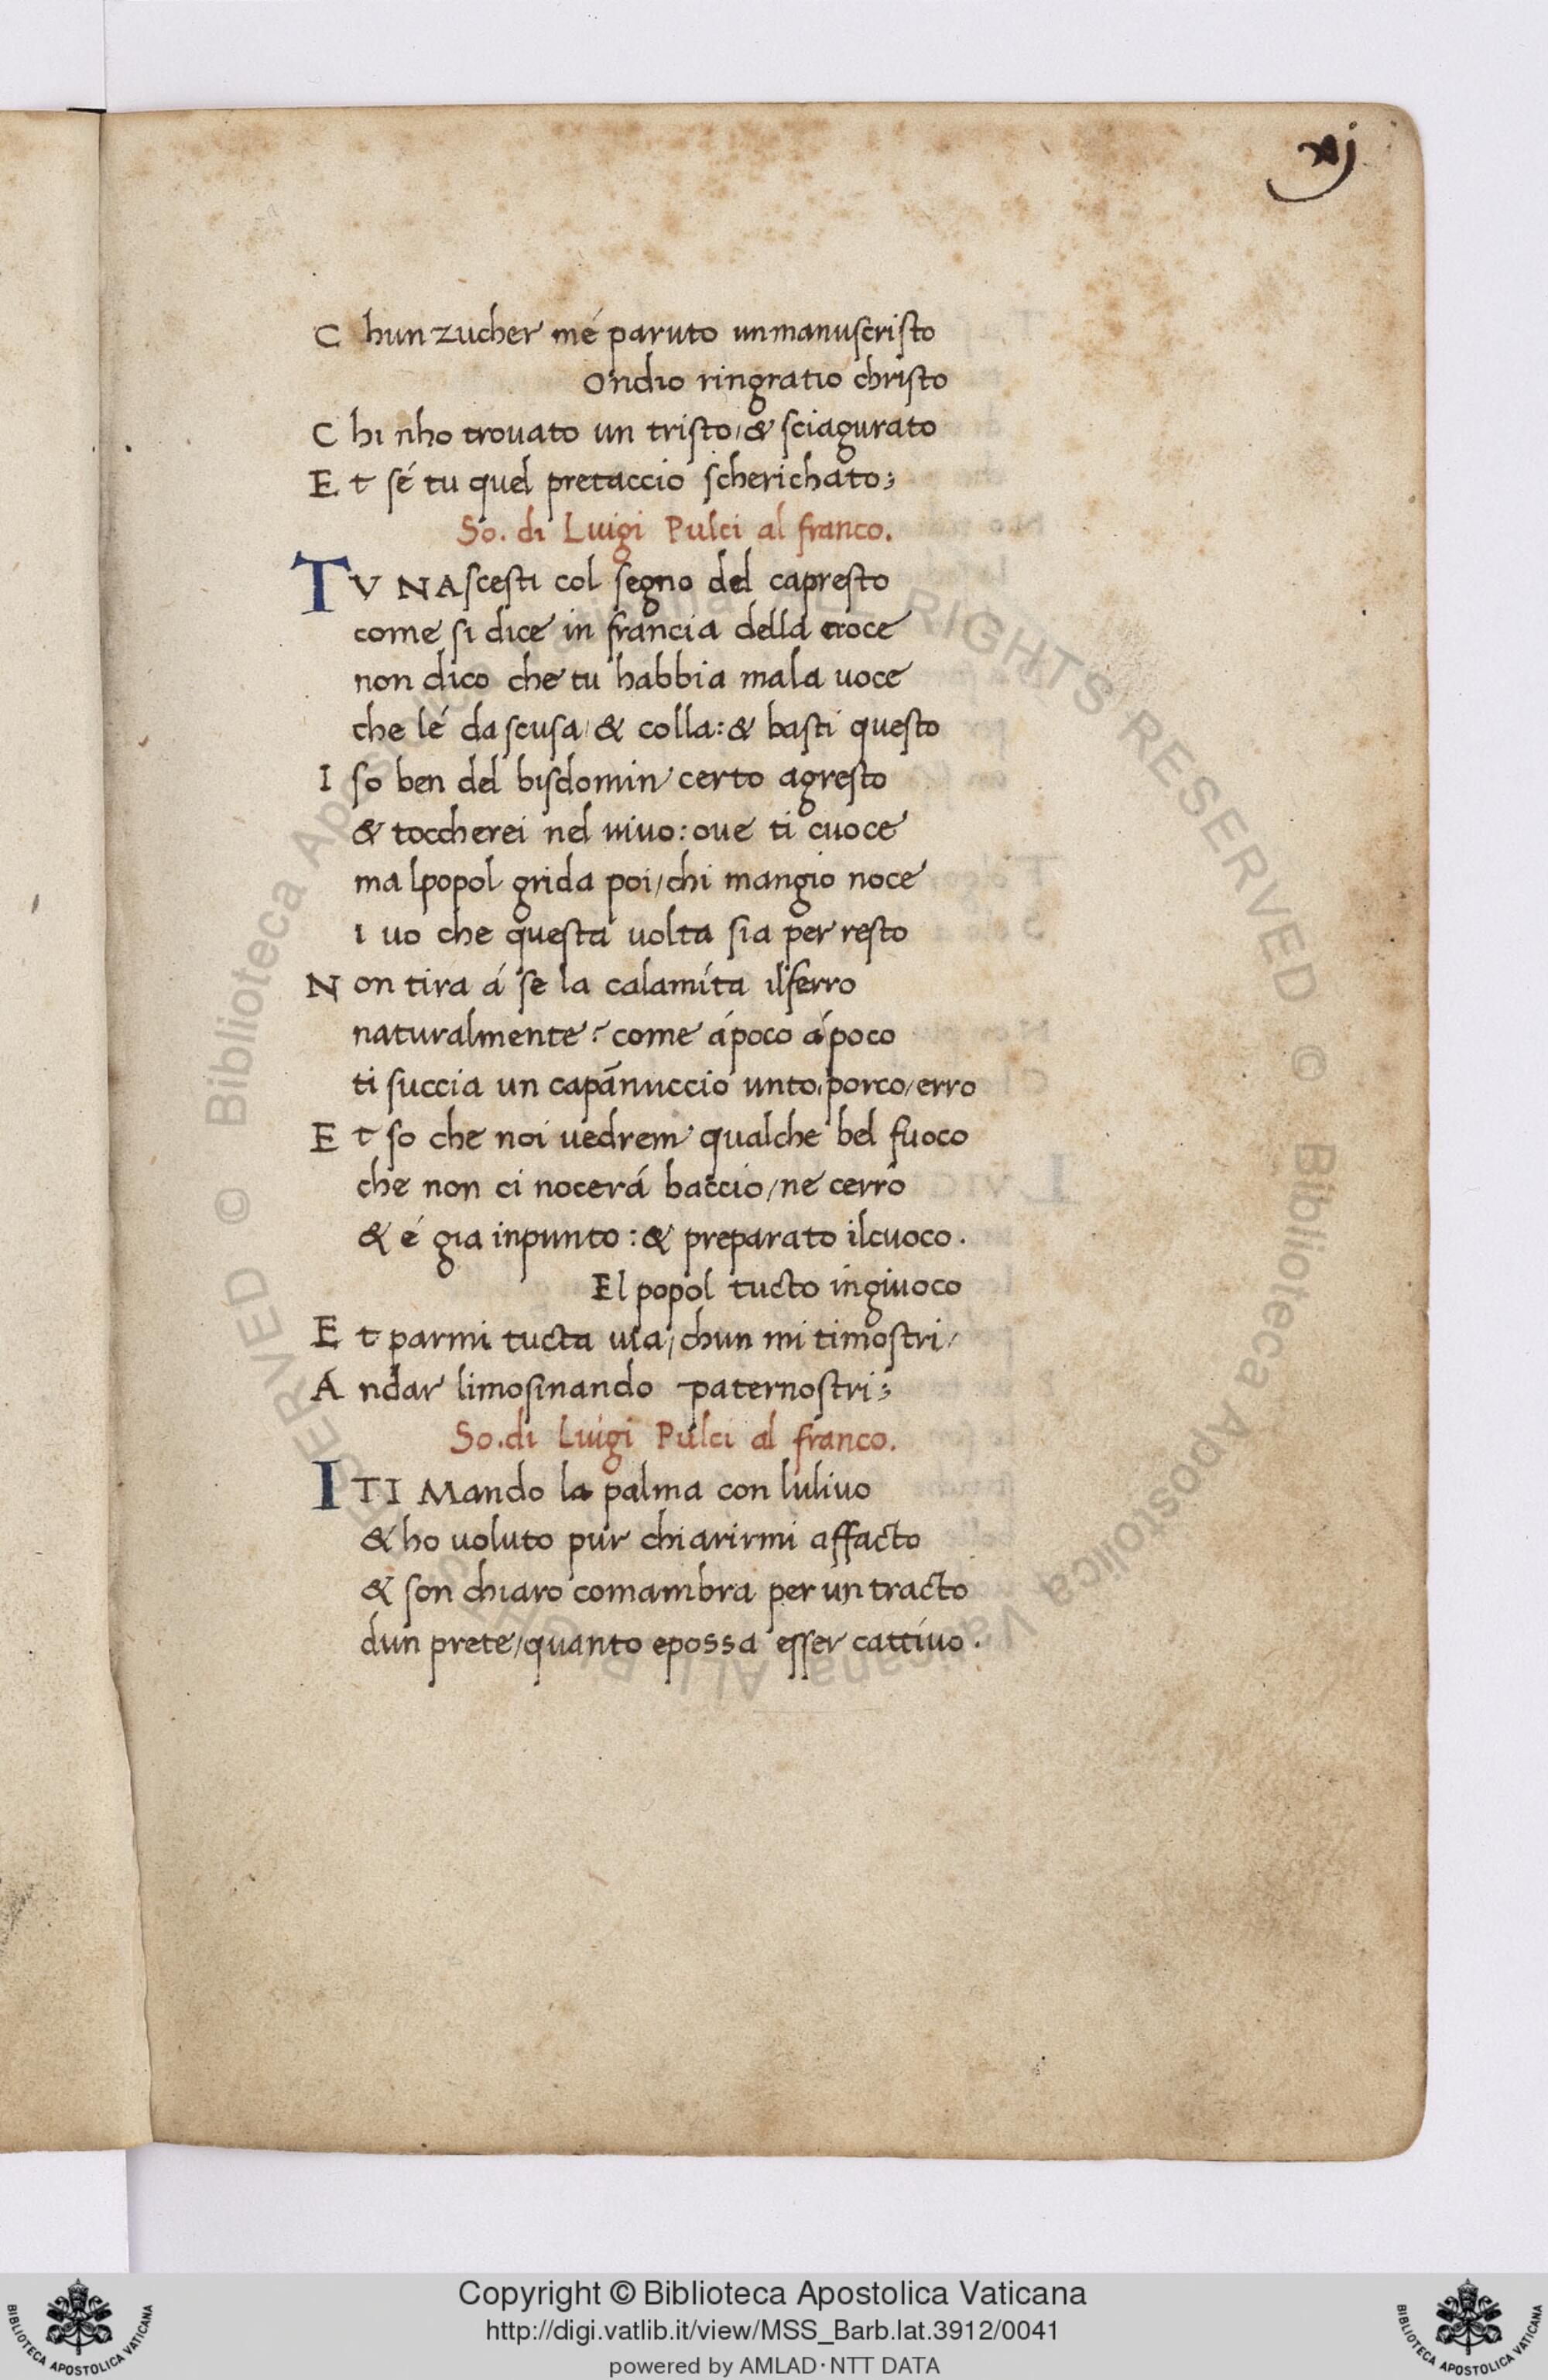 xj
C hun zucher mé paruto un manuscristo
Ondio ringratio christo
C hi nho trouato un tristo/& sciagurato
E t sé tu quel pretaccio scherichato;
So. di Luigi Pulci al franco.
TV NAscesti col segno del capresto
come si dice in francia della croce
non dico che tu habbia mala uoce
che lé da scusa/& colla:& basti questo
I so ben del bisdomin certo agresto
& toccherei nel uiuo: oue ti cuoce
ma lpopol grida poi/chi mangio noce
i uo che questa uolta sia per resto
N on tira á se la calamíta ilferro
naturalmente? come ápoco ápoco
ti succia un capānuccio unto,porco/erro
E t so che noi uedrem qualche bel fuoco
che non ci nocerá baccio/ne cerro
& é gia inpunto:& preparato ilcuoco.
El popol tucto ingiuoco
E t parmi tucta uia/chun mi timostri/
A ndar limosinando paternostri;
So.di Luigi Pulci al franco.
I TI Mando la palma con luliuo
& ho uoluto pur chiarirmi affacto
& son chiaro comambra per un tracto
dun prete/quanto epossa esser cattiuo.
© Biblioteca Apostolica Vaticana ALL RIGHTS RESERVED © Biblioteca Apostolica Vaticana ALL RIGHTS RESERVED
Copyright © Biblioteca Apostolica Vaticana
http://digi.vatlib.it/view/MSS_Barb.lat.3912/0041
powered by AMLAD·NTT DATA
BIBLIOTECA APOSTOLICA VATICANA
BIBLIOTECA APOSTOLICA VATICANA